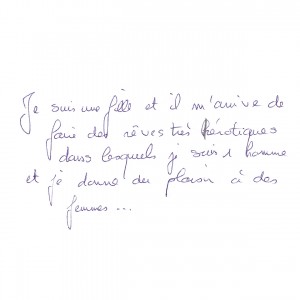 Je suis une fille et il m'arrive de
faire des rêves très hérotiques
dans lesquels je suis 1 homme
et je donne du plaisir à des
femmes ...